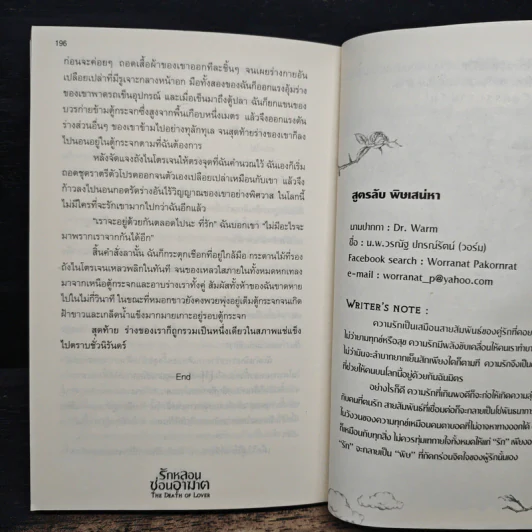 196
ก่อนจะค่อยๆ ถอดเสื้อผ้าของเขาออกทีละชิ้นๆ จนเผยร่างกายอัน
เปลือยเปล่าที่มีรูเจาะกลางหน้าอก มือทั้งสองของฉันก็ออกแรงอุ้มร่าง
ของเขาพาดรถเข็นอุปกรณ์ และเมื่อเข็นมาถึงตู้ปลา ฉันก็ยกแขนของ
บวรก่ายข้ามตู้กระจกซึ่งสูงจากพื้นเกือบหนึ่งเมตร แล้วจึงออกแรงดัน
ร่างส่วนอื่นๆ ของเขาข้ามไปอย่างทุลักทุเล จนสุดท้ายร่างของเขาก็ลง
ไปนอนอยู่ในตู้กระจกตามที่ฉันต้องการ
หลังจัดแจงถังไนโตรเจนให้ตรงจุดที่ฉันคำนวณไว้ ฉันเองก็เริ่ม
ถอดชุดราตรีตัวโปรดออกจนตัวเองเปลือยเปล่าเหมือนกับเขา แล้วจึง
ก้าวลงไปนอนกอดรัดร่างอันไร้วิญญาณของเขาอย่างพิศวาส ในโลกนี้
ไม่มีใครที่จะรักเขามากไปกว่าฉันอีกแล้ว
"เราจะอยู่ด้วยกันตลอดไปนะ ที่รัก" ฉันบอกเขา "ไม่มีอะไรจะ
มาพรากเราจากกันได้อีก"
สิ้นคำสั่งลานั้น ฉันก็กระตุกเชือกที่อยู่ใกล้มือ กระดานไม้ที่รอง
ถังไนโตรเจนเหลวพลิกในทันที จนของเหลวใสภายในทั้งหมดหกเทลง
มาจากเหนือตู้กระจกและอาบร่างเราทั้งคู่ สัมผัสทั้งห้าของฉันขาดหาย
ไปในไม่กี่วินาที ในขณะที่หมอกขาวยังคงพวยพุ่งอยู่เต็มตู้กระจกจนเกิด
ฝ้าขาวและเกล็ดน้ำแข็งมากมายเกาะอยู่รอบตู้กระจก
สุดท้าย ร่างของเราก็ถูกรวมเป็นหนึ่งเดียวในสภาพแช่แข็ง
ไปตราบชั่วนิรันดร์
End
รักหลอน
ซ่อนอาฆาต
THE DEATH OF LOVER
สูตรลับ พิษเสน่หา
นามปากกา : Dr. Warm
ชื่อ : น.พ.วรณัฐ ปกรณ์รัตน์ (วอร์ม)
Facebook search : Worranat Pakornrat
e-mail : worranat_p@yahoo.com
WRITER'S NOTE :
ความรักเป็นเสมือนสายสัมพันธ์ของคู่รักที่คอย
ไม่ว่ายามทุกข์หรือสุข ความรักมีพลังขับเคลื่อนให้คนเราทำ
ไม่ว่ามันจะลำบากยากเย็นสักเพียงใดก็ตามที ความรักจึงเป็น
ที่ช่วยให้คนบนโลกนี้อยู่ด้วยกันฉันมิตร
อย่างไรก็ดี ความรักที่เกินพอดีก็จะก่อให้เกิดความ
กับคนที่ตนรัก สายสัมพันธ์ที่เชื่อมต่อก็จะกลายเป็นโซ่พันธนาการ
ในวังวนของความทุกข์เหมือนคนตาบอดที่ไม่อาจหาทางออกได้
ก็เหมือนกับทุกสิ่ง ไม่ควรทุ่มเทกายใจทั้งหมดให้แก่ "รัก" เพียง
"รัก" จะกลายเป็น "พิษ" ที่กัดกร่อนจิตใจของผู้รักนั้นเอง